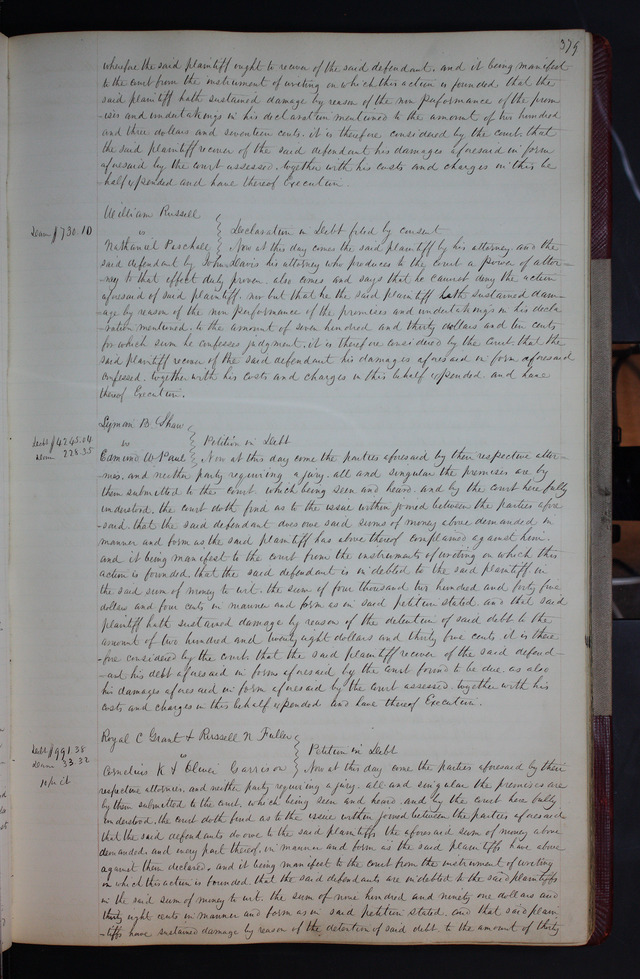 379
wherefore the said plaintiff ought to recover of the said defendant. and it being manifest
to the court from the instrument of writing on which this action is founded that the
said plaintiff hath sustained damage by reason of the non performance of the prom
-ises and undertakings in his declaration mentioned to the amount of two hundred
and three dollars and seventeen cents. it is therefore considered by the court that
the said plaintiff recover of the said defendant his damages aforesaid in form
aforesaid by the court assessed. together with his costs and charges in this be
-half expended and have thereof Execution.
William Russell
Dam $730.10 vs Declaration in Debt filed by consent
Nathaniel Paschall Now at this day comes the said plaintiff by his attorney. and the
said defendant by John Davis his attorney who produces to the court a power of attor-
-ney to that effect duly proven. also comes and says that he cannot deny the action
aforesaid of said plaintiff. nor but that he the said plaintiff hath sustained dam-
-age by reason of the non performance of the promises and undertakings in his decla
-ration mentioned. to the amount of seven hundred and thirty dollars and ten cents
for which sum he confesses judgment. it is therefore considered by the Court. that the
said plaintiff recover of the said defendant his damages aforesaid in form aforesaid
confessed. together with his costs and charges in this behalf expended and have
thereof Execution.
Lyman B Shaw
Debt $4245.04 vs Petition in Debt
Dam 228.35 Edmund W Paul Now at this day come the parties aforesaid by their respective attor-
-nies. and neither party requiring a jury. all and singular the premises are by
them submitted to the court. which being seen and heard. and by the court here fully
understood. the court doth find as to the issue within joined between the parties afore
-said. that the said defendant does owe said sums of money above demanded in
manner and form as the said plaintiff has above thereof complained against him.
and it being manifest to the court from the instruments of writing on which this
action is founded, that the said defendant is indebted to the said plaintiff in
the said sum of money to wit. the sum of four thousand two hundred and forty five
dollars and four cents in manner and form as in said petition stated. and that said
plaintiff hath sustained damage by reason of the detention of said debt to the
amount of two hundred and twenty eight dollars and thirty five cents it is there
-fore considered by the court. that the said plaintiff recover of the said defend-
-ant his debt aforesaid in form aforesaid by the court found to be due. as also
his damages aforesaid in form aforesaid by the court assessed. together with his
costs and charges in this behalf expended and have thereof Execution.
Royal C Grant & Russell N Fuller
Debt $991.38 vs Petition in Debt
Dam 33.32 Cornelius K & Oliver Garrison Now at this day come the parties aforesaid by their
10 pr ct respective attornies. and neither party requiring a jury. all and singular the premises are
by them submitted to the court. which being seen and heard. and by the court here fully
understood. the court doth find as to the issue within joined between the parties aforesaid
that the said defendants do owe to the said plaintiffs the aforesaid sum of money above
demanded. and every part thereof. in manner and form as the said plaintiffs have above
against them declared. and it being manifest to the court from the instrument of writing
on which this action is founded. that the said defendants are indebted to the said plaintiffs
in the said sum of money to wit. the sum of nine hundred and ninety one dollars and
thirty eight cents in manner and form as in said petition stated. and that said plain
-tiffs have sustained damage by reason of the detention of said debt to the amount of thirty